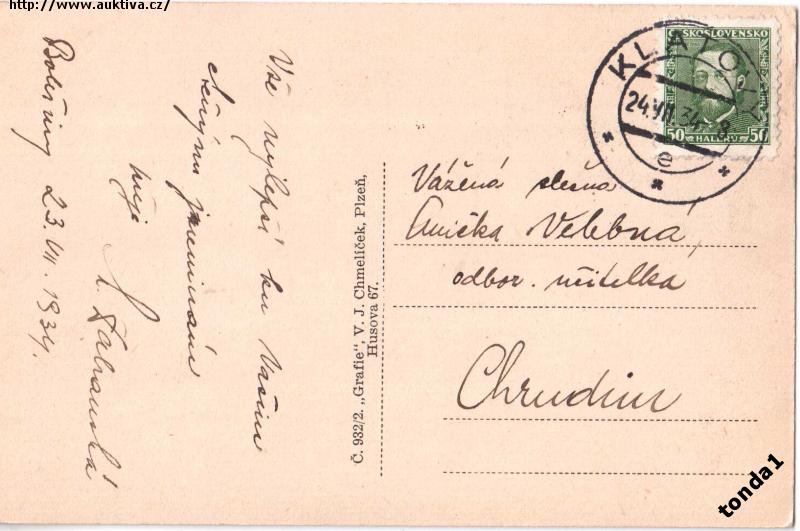 http://www.auktiva.cz/
ČESKOSLOVENSKO
50 HALÉŘŮ 50
KLATOVY
24.VII.34.-8
e
Vše nejlepší ku Vašim
jmeninám
přeje
23.VII.1934.
Č. 932/2. „Grafie", V. J. Chmelíček, Plzeň,
Husova 67.
Vážená slečna
Anička Velebná,
odbor. učitelka
Chrudim
tonda1